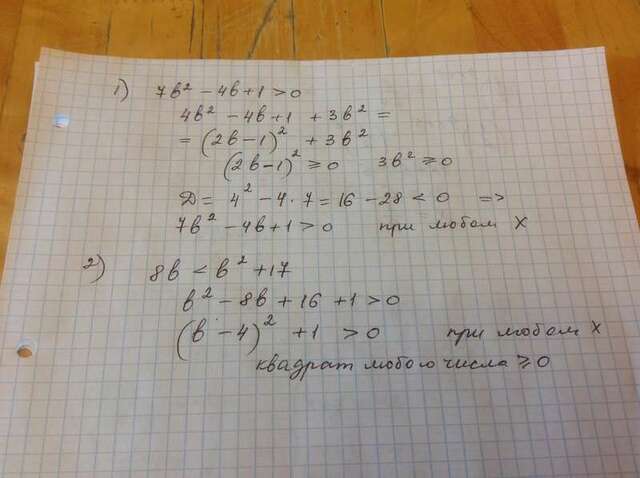 1) 7в² - 4в + 1 > 0
4в² - 4в + 1 + 3в² =
= (2в - 1)² + 3в²
(2в - 1)² ≥ 0 3в² ≥ 0
Д = 4² - 4 · 7 = 16 - 28 < 0 =>
7в² - 4в + 1 > 0 при любом х
2) 8в < в² + 17
в² - 8в + 16 + 1 > 0
(в - 4)² + 1 > 0 при любом х
квадрат любого числа ≥ 0